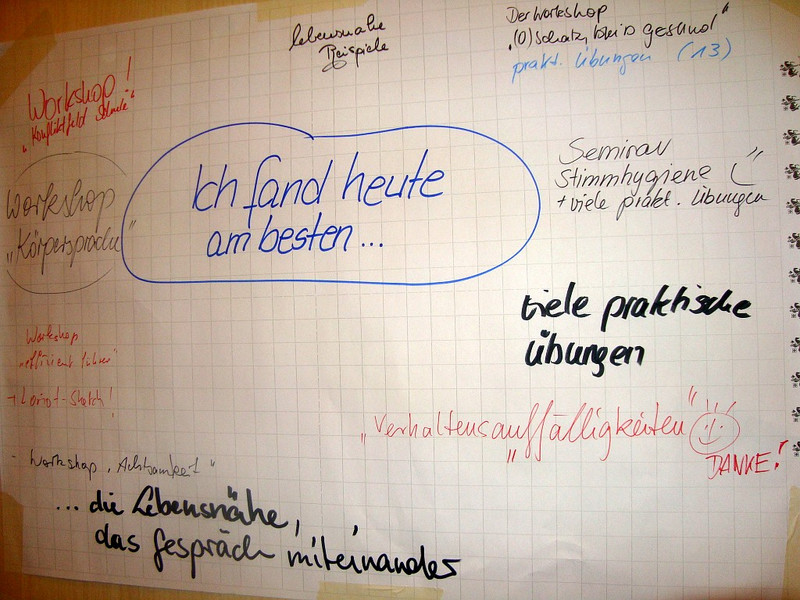 lebensnahe
Beispiele
Der Workshop
"(O) Schatz, bleib gesund"
prakt. Übungen (13)
Workshop!
"Konfliktfeld Schule"
Workshop
"Körpersprache"
Ich fand heute
am besten...
Seminar
Stimmhygiene
+ viele prakt. Übungen
viele praktische
Übungen
Workshop
"effizient führen"
→ Loriot-Sketch!
"Verhaltensauffälligkeiten"
DANKE!
- Workshop "Achtsamkeit"
... die Lebensnähe,
das Gespräch miteinander